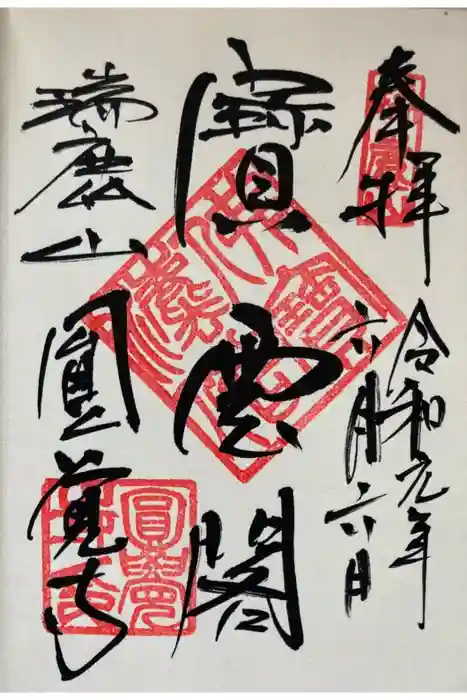 奉拝
令和元年
六月六日
寶雲閣
瑞鹿山
圓覺寺